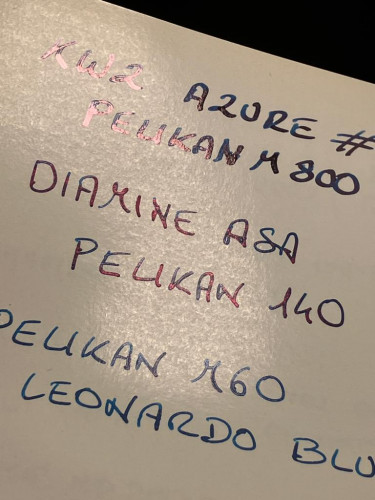 KWZ AZURE #
PELIKAN M800
DIAMINE ASA
PELIKAN 140
PELIKAN M60
LEONARDO BLU